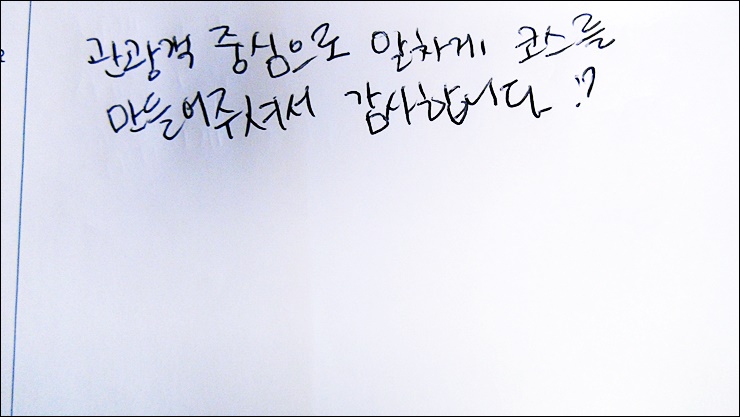 관광객 중심으로 알차게 코스를
만들어주셔서 감사합니다 :?